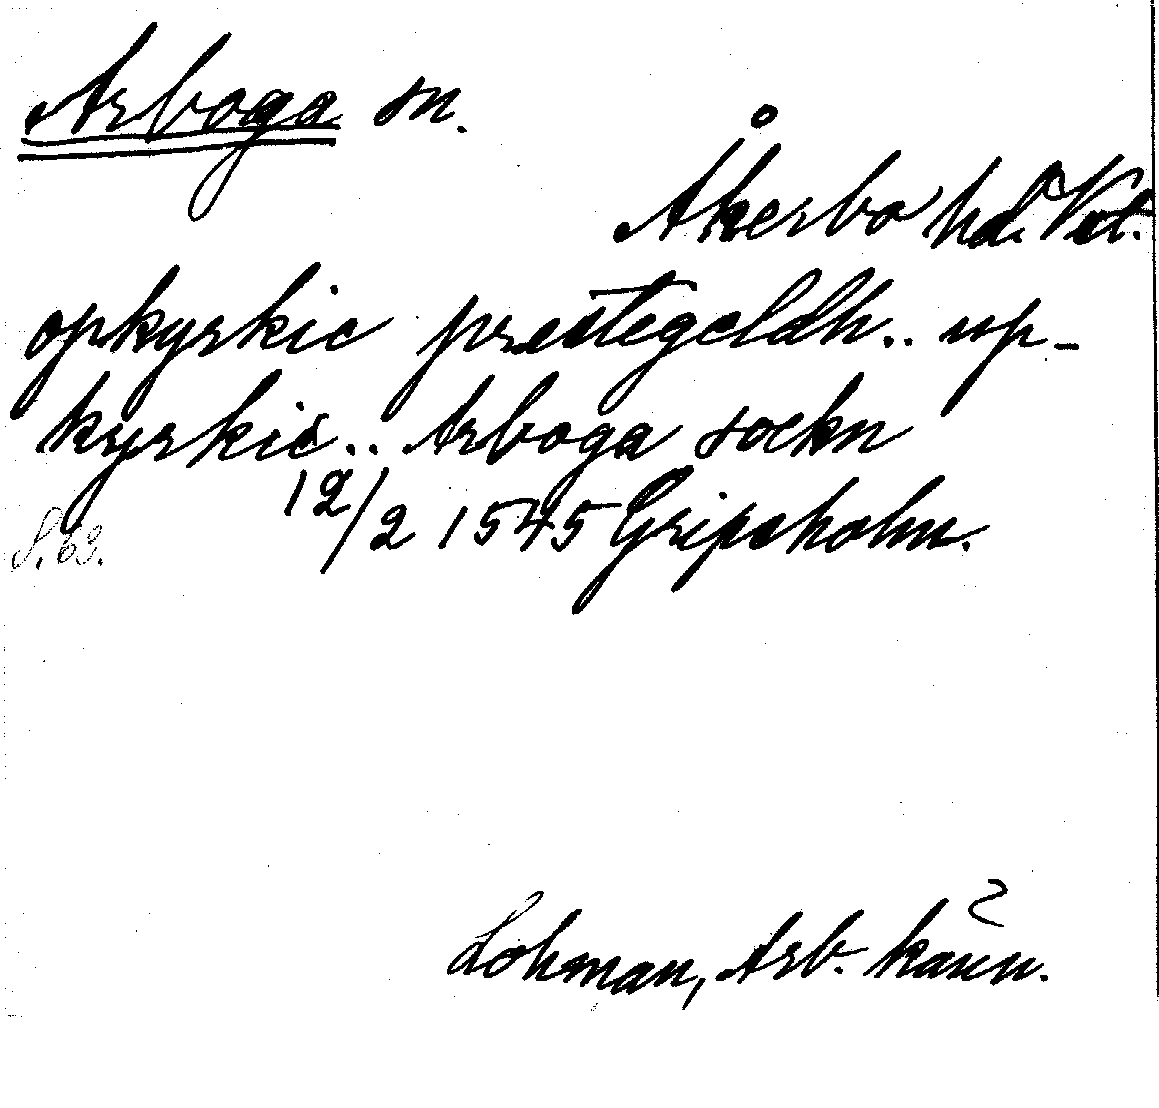 Arboga sn.
Åkerbo hd. Vst.
opkyrkie prestegeldh.. up-
kyrkie.. Arboga sockn
12/2 1545 Gripsholm.
S. 69.
Lohman, Arb. känn.